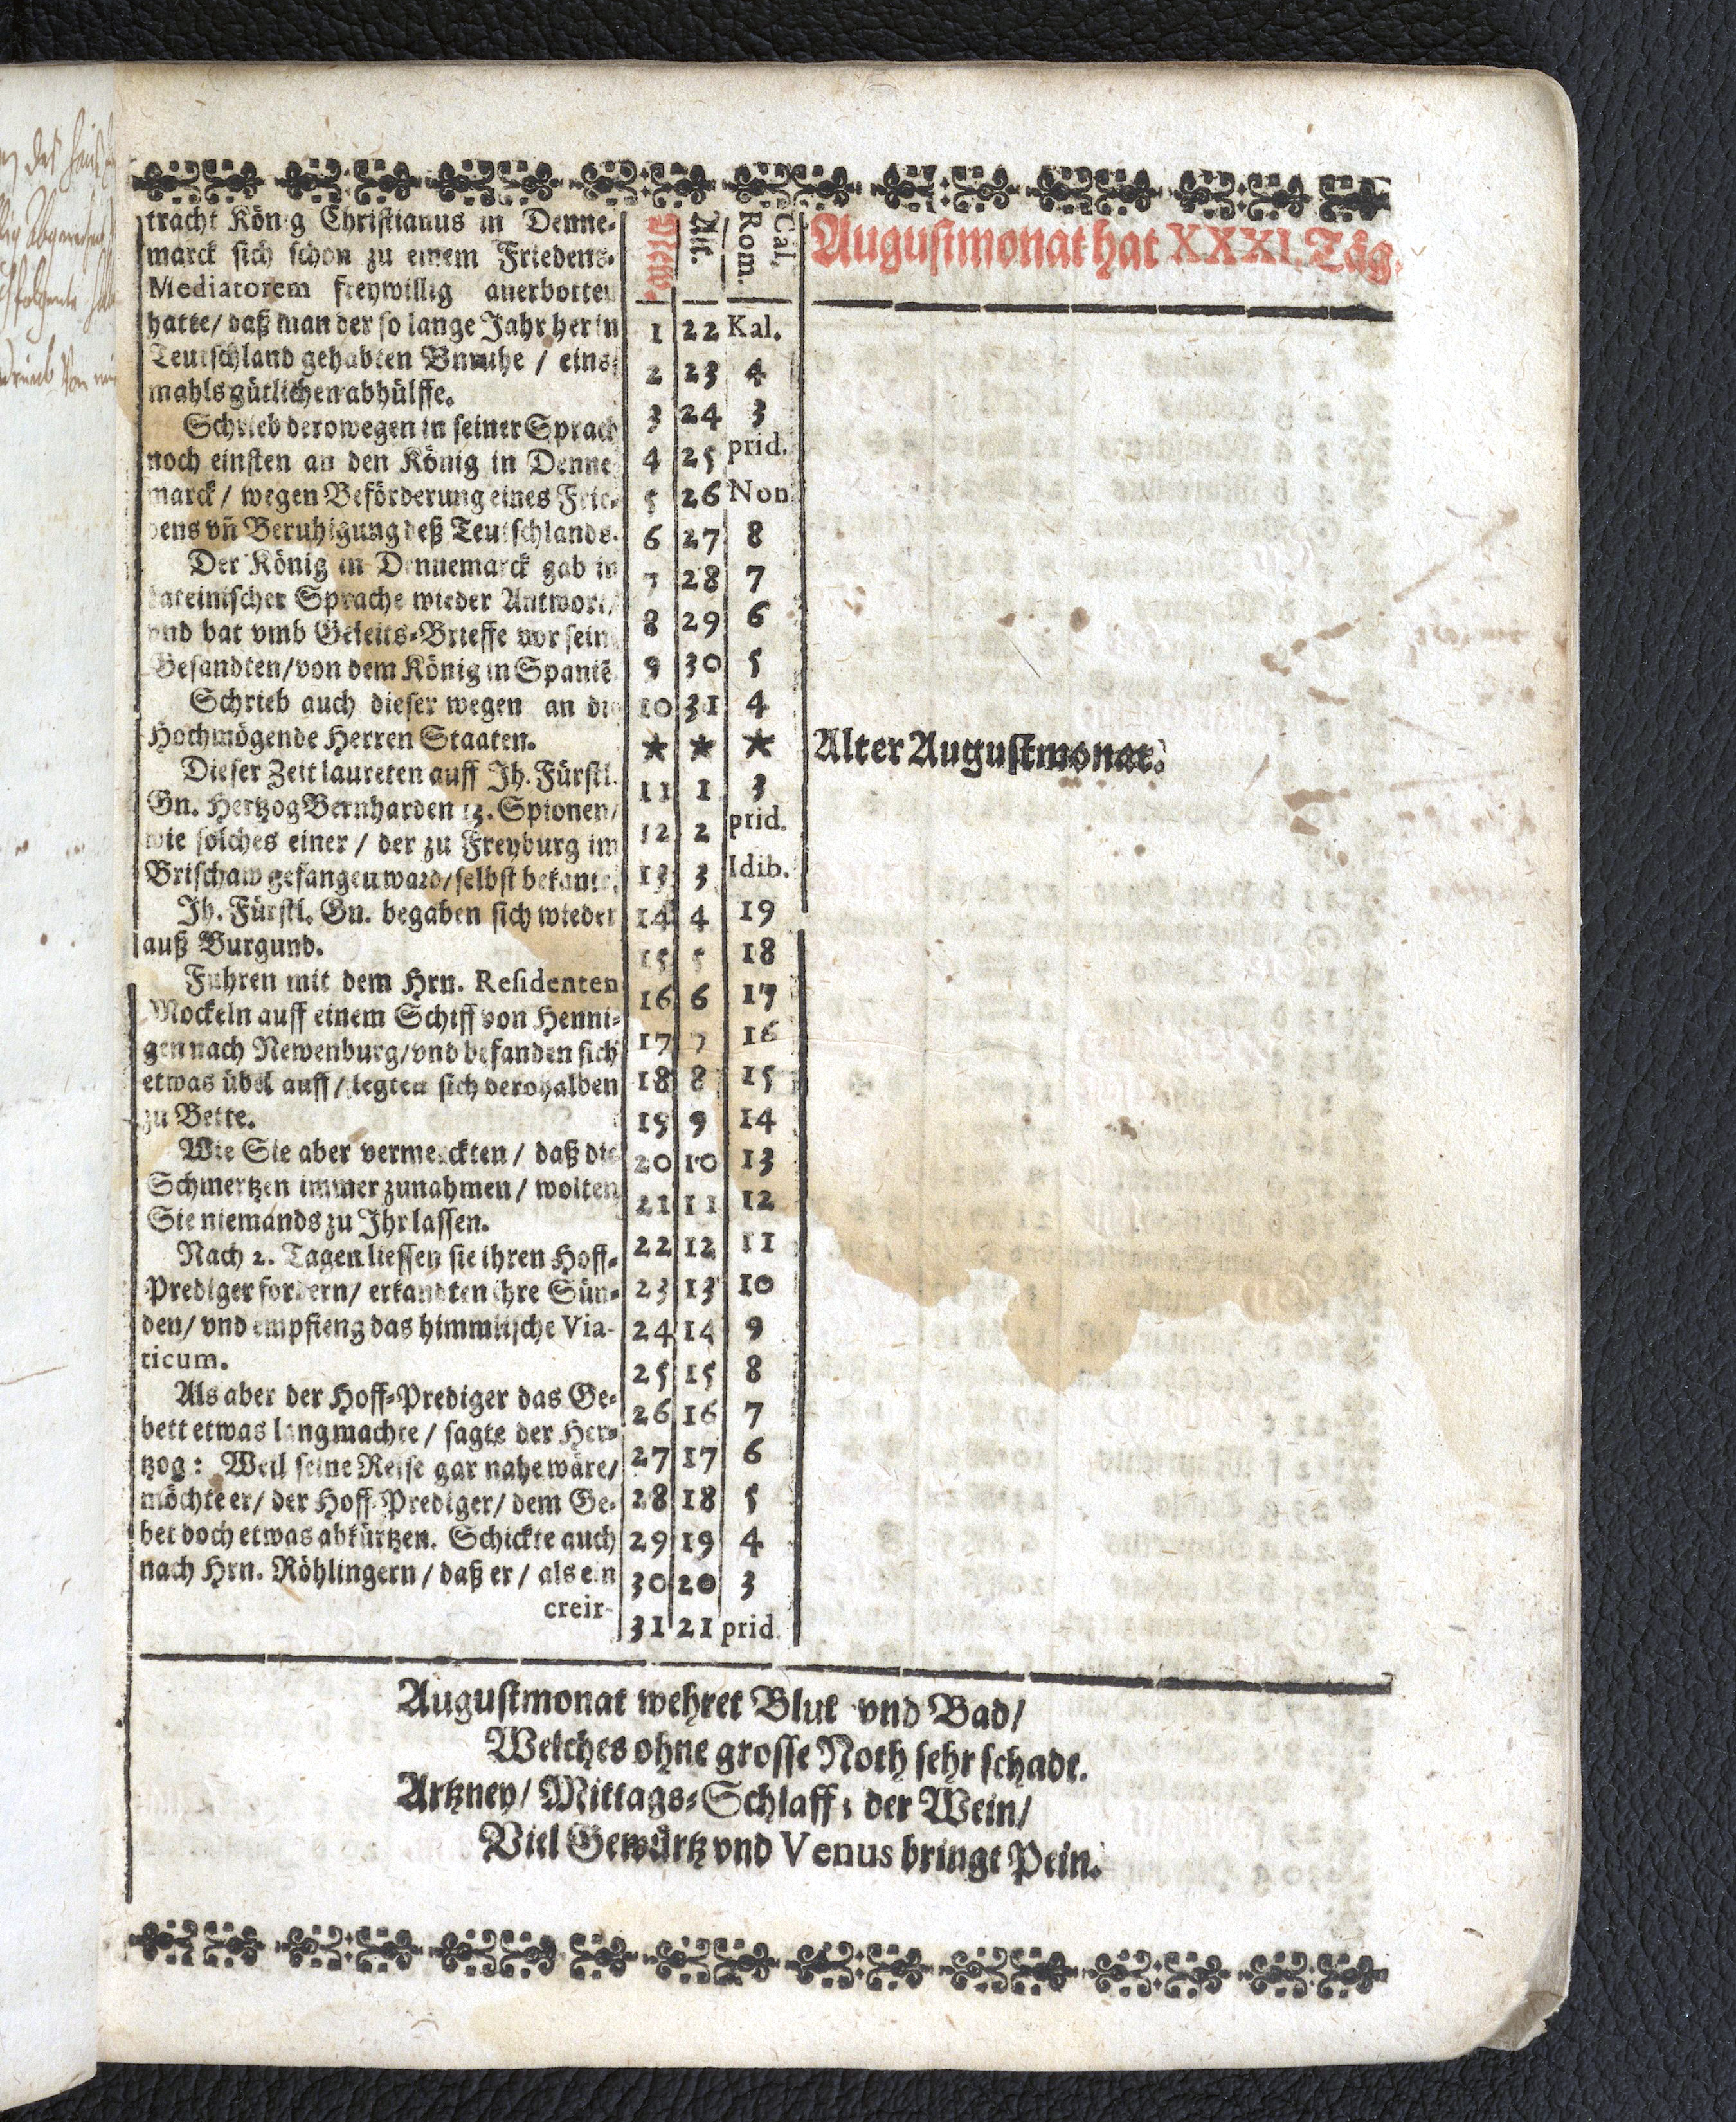 tracht König Christianus in Denne-
marck sich schon zu einem Friedens-
Mediatorem freywillig anerbotten
hatte/ daß man der so lange Jahr her in
Teutschland gehabten Vnruhe / eins-
mahls gütlichen abhülffe.
Schrieb derowegen in seiner Sprach
noch einsten an den König in Denne
marck/ wegen Beförderung eines Frie-
dens vñ Beruhigung deß Teutschlands.
Der König in Dennemarck gab in
Lateinischer Sprache wieder Antwort/
vnd bat vmb Geleits-Brieffe vor sein
Gesandten/von dem König in Spaniē
Schrieb auch dieser wegen an die
Hochmögende Herren Staaten.
Dieser Zeit laureten auff Ih. Fürstl.
Gn. Hertzog Bernharden 13. Spionen/
wie solches einer / der zu Freyburg im
Brischaw gefangen ward/selbst bekante.
Ih. Fürstl. Gn. begaben sich wieder
auß Burgund.
Fuhren mit dem Hrn. Residenten
Mockeln auff einem Schiff von Henni-
gen nach Newenburg/vnd befanden sich
etwas übel auff/ legten sich derohalben
zu Bette.
Wie Sie aber vermerckten/ daß die
Schmertzen immer zunahmen/ wolten
Sie niemands zu Ihr lassen.
Nach 2. Tagen liessen sie ihren Hoff-
Prediger fordern/ erkandten ihre Sün-
den/ vnd empfieng das himmlische Via-
ticum.
Als aber der Hoff-Prediger das Ge-
bett etwas lang machte/ sagte der Her-
tzog: Weil seine Reise gar nahe wäre/
möchte er/ der Hoff-Prediger/ dem Ge-
bet doch etwas abkürtzen. Schickte auch
nach Hrn. Röhlingern/ daß er/ als ein
creir-
New. Alt. Cal. Rom.
1 22 Kal.
2 23 4
3 24 3
4 25 prid.
5 26 Non
6 27 8
7 28 7
8 29 6
9 30 5
10 31 4
* * *
11 1 3
12 2 prid.
13 3 Idib.
14 4 19
15 5 18
16 6 17
17 7 16
18 8 15
19 9 14
20 10 13
21 11 12
22 12 11
23 13 10
24 14 9
25 15 8
26 16 7
27 17 6
28 18 5
29 19 4
30 20 3
31 21 prid.
Augustmonat hat XXXI. Täg.
Alter Augustmonat.
Augustmonat wehret Blut vnd Bad/
Welches ohne grosse Noth sehr schadt.
Artzney/ Mittags-Schlaff, der Wein/
Viel Gewürtz vnd Venus bringt Pein.